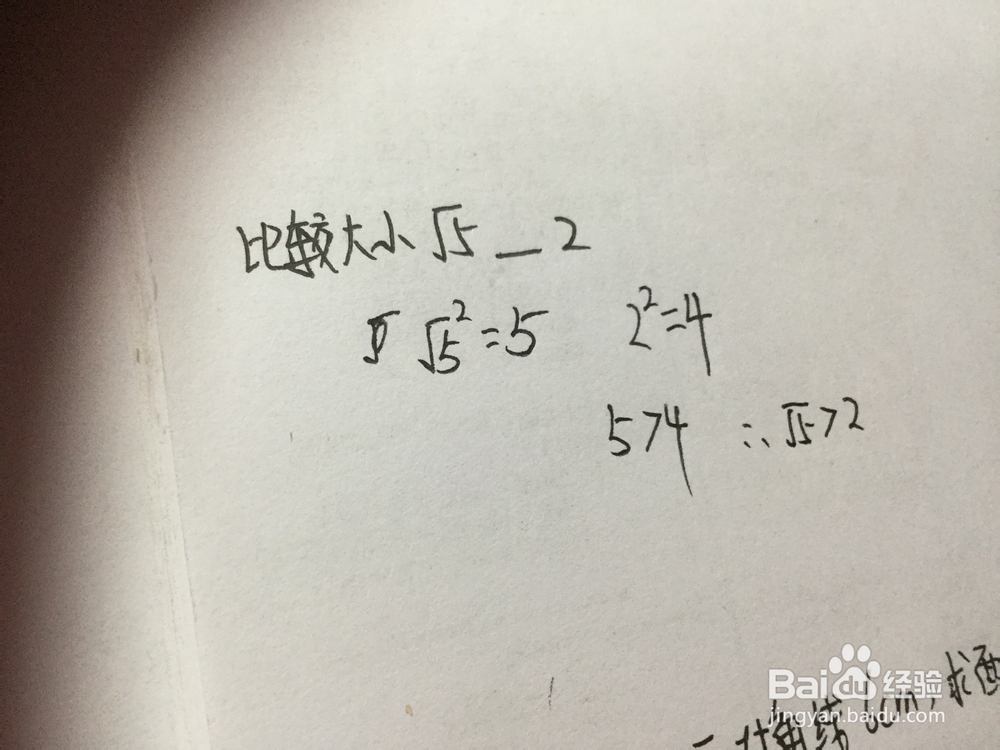 比较大小 √5 _ 2
√5²=5 2²=4
5>4 ∴√5>2
对角线6cm,求
Baidu经验
jingyan.baidu.com